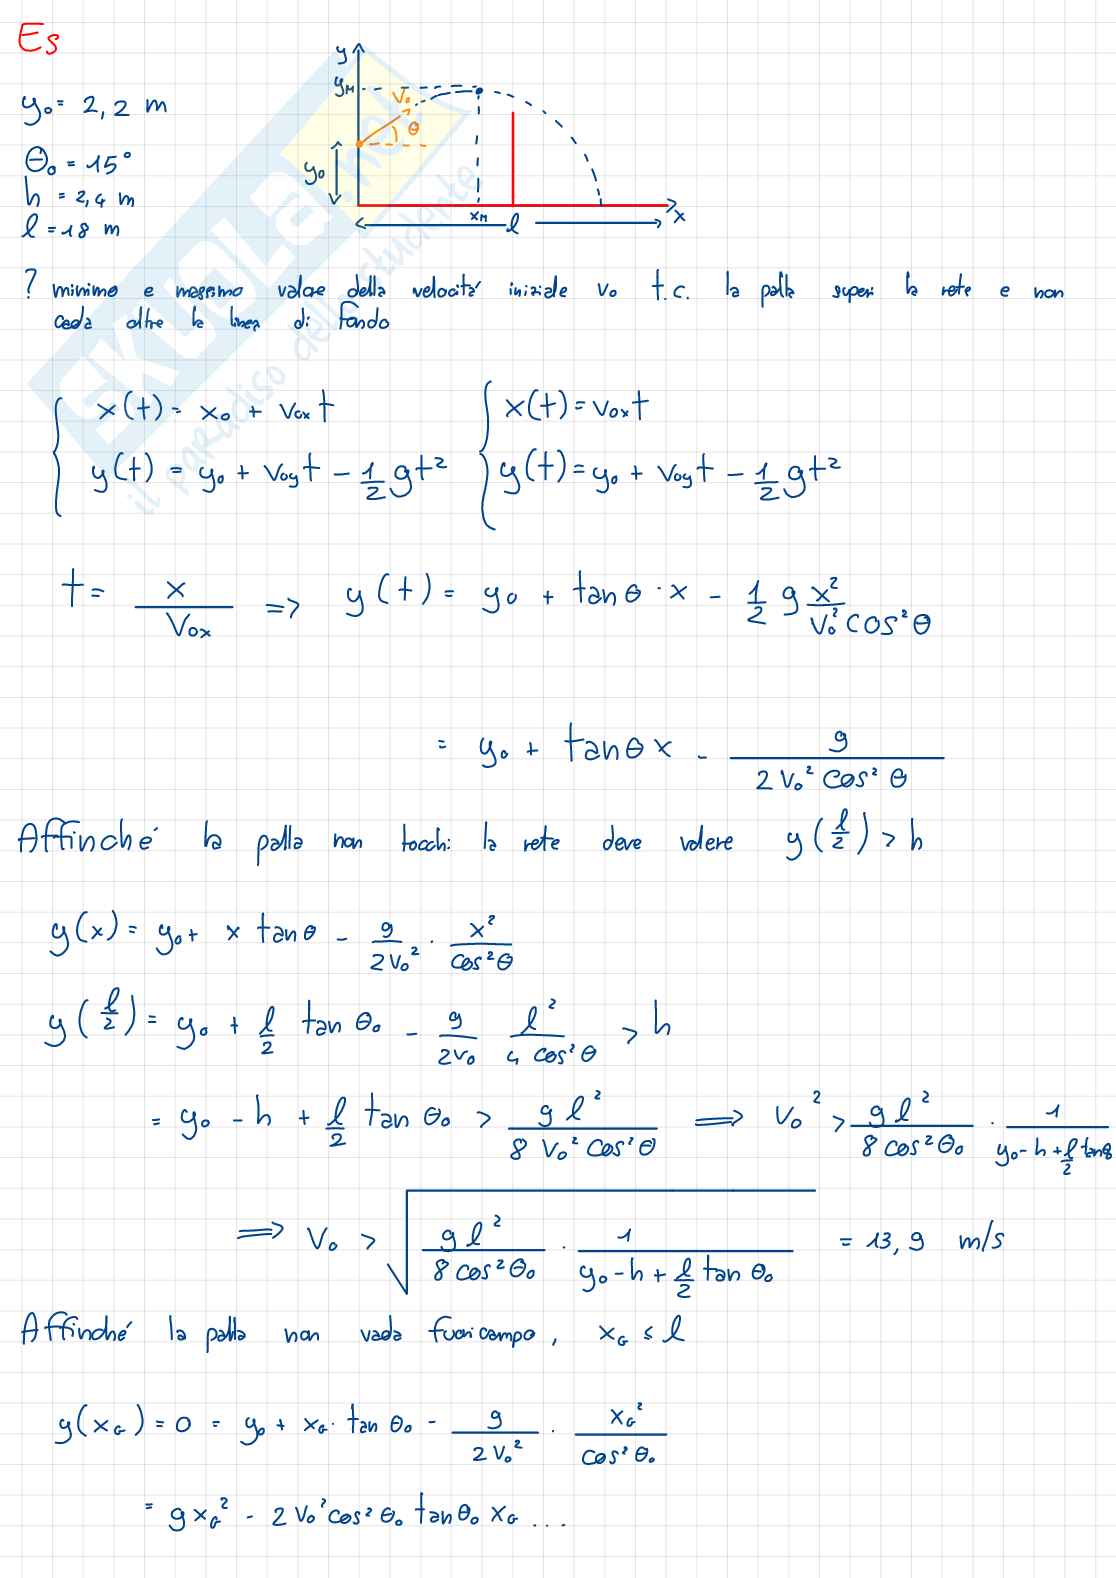 Es
y₀ = 2,2 m
θ₀ = 15°
h = 2,4 m
l = 18 m
y
y_M
V₀
θ
y₀
x_M
l
x
? minimo e massimo valore della velocità iniziale v₀ t.c. la palla superi la rete e non
cada oltre la linea di fondo
{ x(t) = x₀ + v₀ₓt { x(t) = v₀ₓt
y(t) = y₀ + v₀yt - 1/2 gt² y(t) = y₀ + v₀yt - 1/2 gt²
t = x/V₀ₓ => y(t) = y₀ + tanθ · x - 1/2 g x²/(V₀² cos²θ)
= y₀ + tanθ x - g/(2V₀² cos²θ)
Affinché la palla non tocchi la rete deve valere y(l/2) > h
y(x) = y₀ + x tanθ - g/(2V₀²) · x²/(cos²θ)
y(l/2) = y₀ + l/2 tan θ₀ - g/(2V₀) l²/(4 cos²θ) > h
= y₀ - h + l/2 tan θ₀ > gl²/(8 V₀² cos²θ) => V₀² > gl²/(8 cos²θ₀) · 1/(y₀ - h + l/2 tanθ
=> V₀ > √(gl²/(8 cos²θ₀) · 1/(y₀ - h + l/2 tan θ₀)) = 13,9 m/s
Affinché la palla non vada fuori campo, x_G ≤ l
y(x_G) = 0 = y₀ + x_G · tan θ₀ - g/(2V₀²) · x_G²/(cos²θ₀)
= gx_G² - 2V₀²cos²θ₀ tanθ₀ x_G ...
SKUOLA.net
il paradiso dello studente